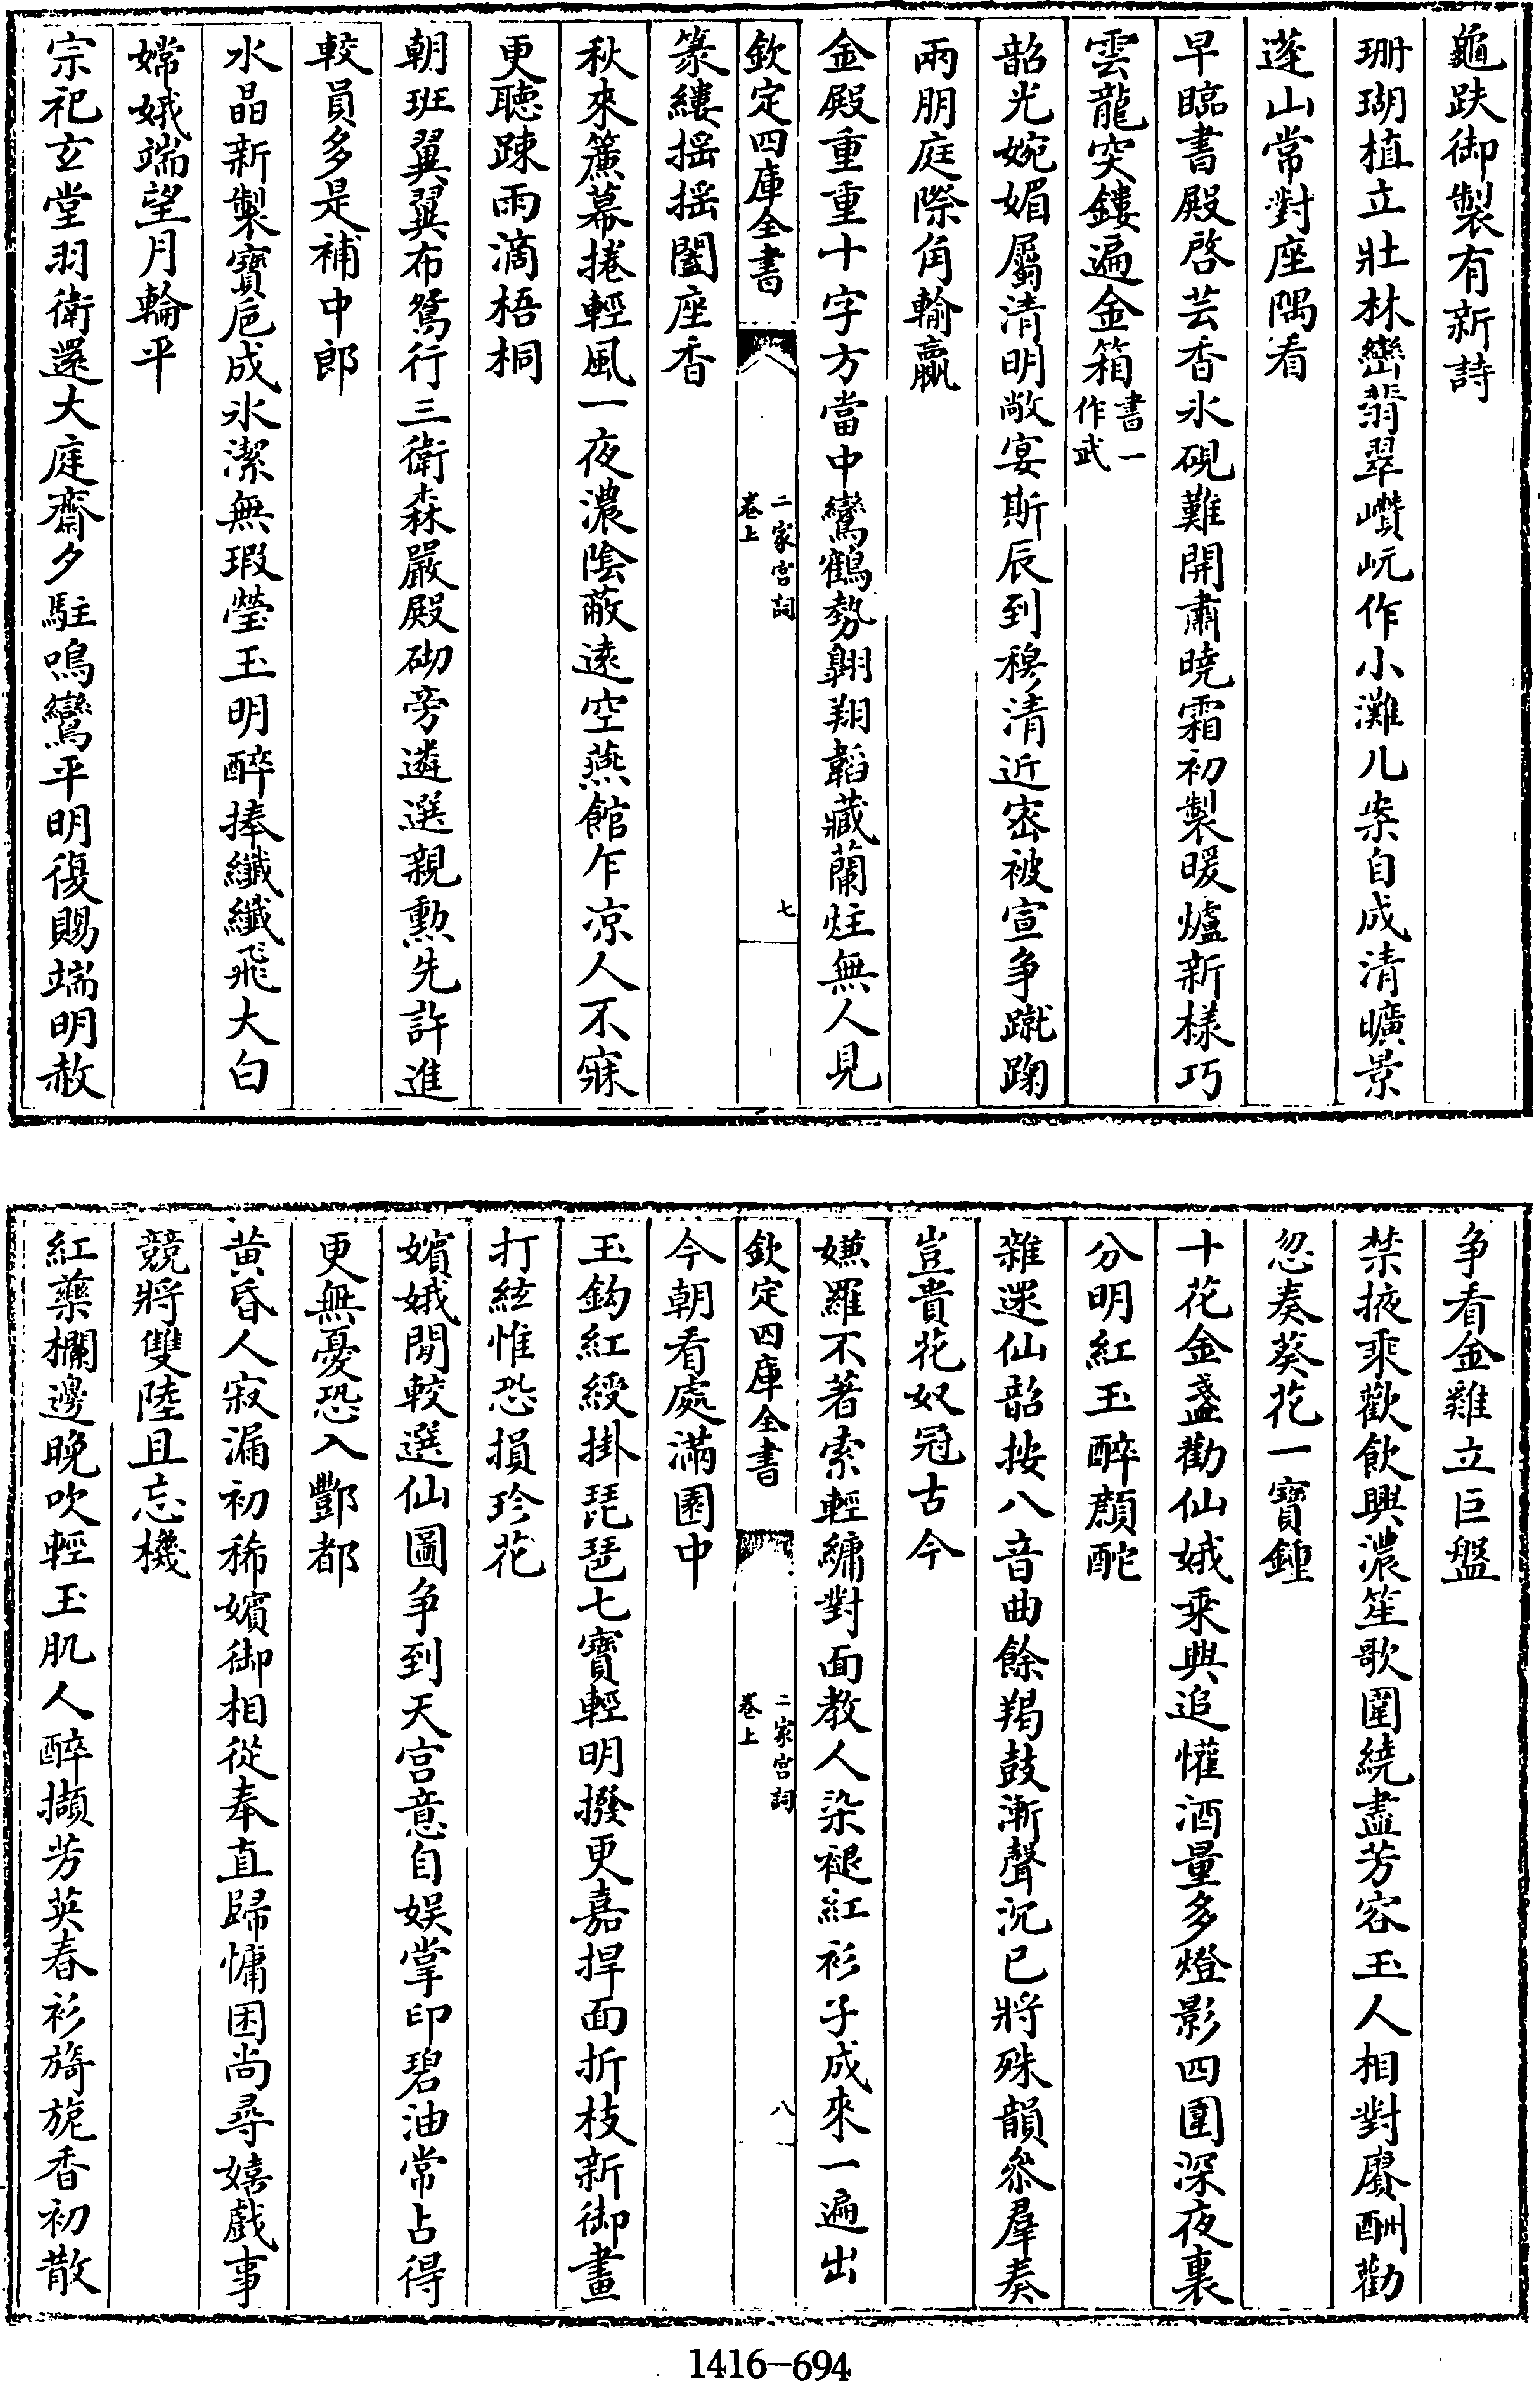 龜趺御製有新詩
珊瑚植立壯林巒翡翠巑岏作小灘几案自成清曠景
蓬山常對座隅看
早臨書殿啓芸香氷硯難開肅曉霜初製暖爐新様巧
雲龍突鏤遍金箱書一作武
韶光婉媚屬清明敞宴斯辰到穆清近宻被宣争蹴踘
兩朋庭際角輸贏
金殿重重十字方當中鸞鶴勢翺翔韜藏蘭炷無人見
欽定四庫全書
二家宮詞
卷上
七
篆縷摇摇闔座香
秋來簾幕捲輕風一夜濃陰蔽逺空燕館乍凉人不寐
更聽踈雨滴梧桐
朝班翼翼布鴛行三衛森嚴殿砌旁遴選親勲先許進
較員多是補中郎
水晶新製寶巵成氷潔無瑕瑩玉明醉捧纎纎飛大白
嫦娥端望月輪平
宗祀玄堂羽衛還大庭齋夕駐鳴鸞平明復賜端明赦
争看金雞立巨盤
禁掖乘歡飲興濃笙歌圍繞盡芳容玉人相對賡酬勸
忽奏葵花一寳鍾
十花金盞勸仙娥乘興追懽酒量多燈影四圍深夜裏
分明紅玉醉顔酡
雜遝仙韶按八音曲餘羯鼓漸聲沉已將殊韻叅羣奏
豈貴花奴冠古今
嫌羅不著索輕繡對面教人染褪紅衫子成來一遍出
欽定四庫全書
二家宮詞
卷上
八
今朝看處滿園中
玉鈎紅綬掛琵琶七寳輕明撥更嘉捍面折枝新御畫
打絃惟恐損珍花
嬪娥閒較選仙圖争到天宮意自娱掌印碧油常占得
更無憂恐入酆都
黄昏人寂漏初稀嬪御相從奉直歸慵困尚尋嬉戲事
競將雙陸且忘機
紅藥欄邊晚吹輕玉肌人醉擷芳英春衫旖旎香初散
1416—694